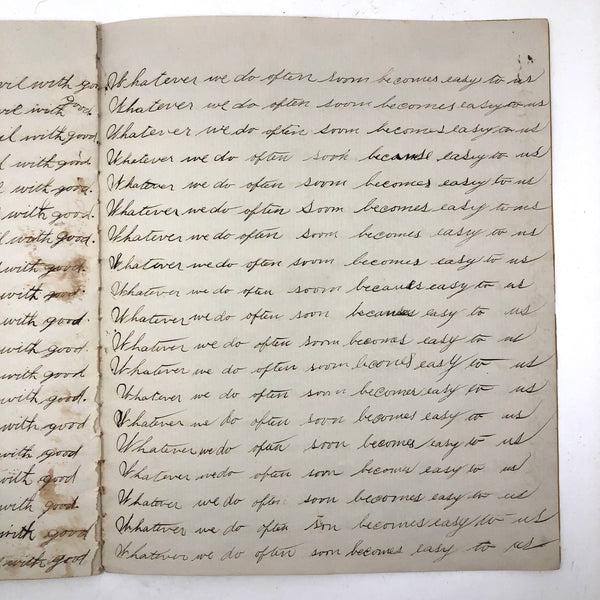 vil with good
Whatever we do often soom becomes easy to us
vil with good.
Whatever we do often soom becomes easy to us
il with good
Whatever we do often soom becomes easy to us
l with good
Whatever we do often soon easy to us
l with good.
Whatever we do often soon becomes easy to us
l with good.
Whatever we do often soon becomes easy to us
il with good.
Whatever we do often soon becomes easy to us
d with good.
Whatever we do often soon becomes easy to us
with good.
Whatever we do often soom easy to us
with good
Whatever we do often soon easy to us
with good.
Whatever we do often soon becomes easy to us
with good
Whatever we do often soon becomes easy to us
with good.
Whatever we do often soon becomes easy to us
with good
Whatever we do often soon becomes easy to us
with good
Whatever we do often soon becomes easy to us
with good
Whatever we do often soon becomes easy to us
with good
Whatever we do often soon becomes easy to us
with good
Whatever we do often son becomes easy to us
with good
Whatever we do often soon becomes easy to us